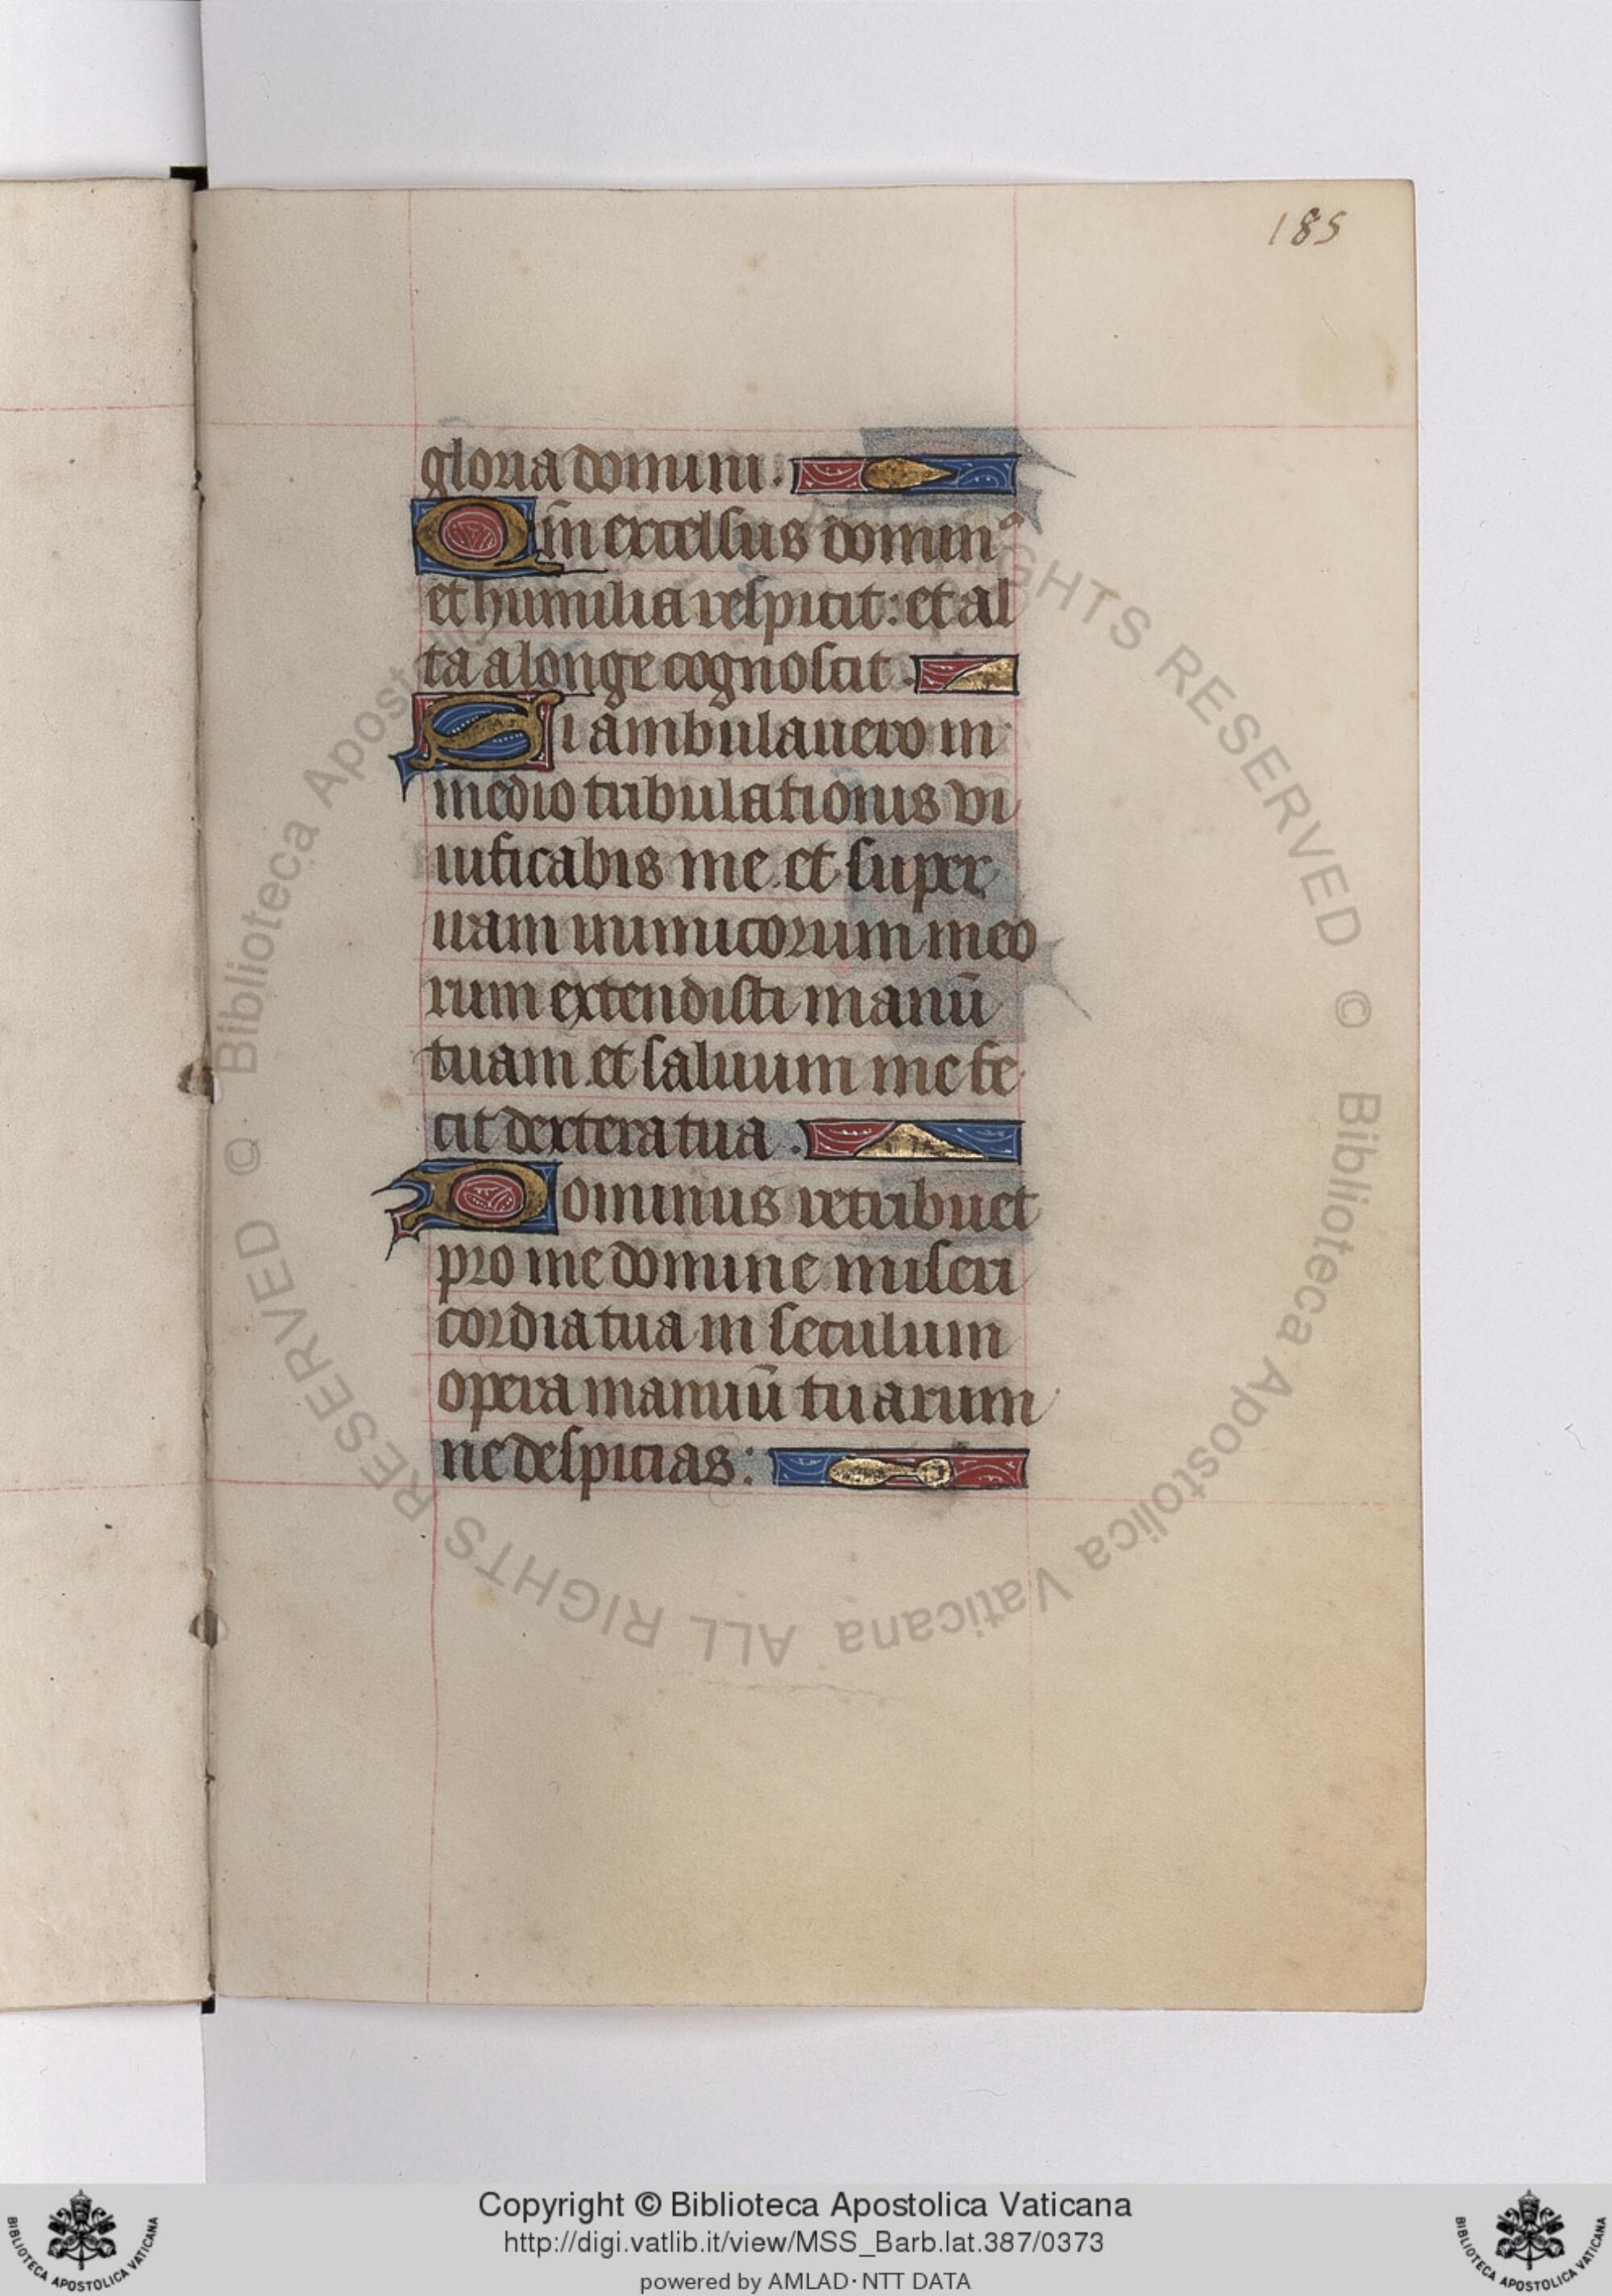 185
gloria domini.
Qm̄ excelsus domin⁹
et humilia respicit: et al
ta a longe cognoscit.
Si ambulauero in
medio tribulationis vi
uificabis me. et super
iram inimicorum meo
rum extendisti manū
tuam. et saluum me fe
cit dextera tua.
Dominus retribuet
pro me domine miseri
cordia tua in seculum
opera manuū tuarum
ne despicias:
© Biblioteca Apostolica Vaticana ALL RIGHTS RESERVED
© Biblioteca Apostolica Vaticana ALL RIGHTS RESERVED
Copyright © Biblioteca Apostolica Vaticana
http://digi.vatlib.it/view/MSS_Barb.lat.387/0373
powered by AMLAD·NTT DATA
BIBLIOTECA APOSTOLICA VATICANA
BIBLIOTECA APOSTOLICA VATICANA